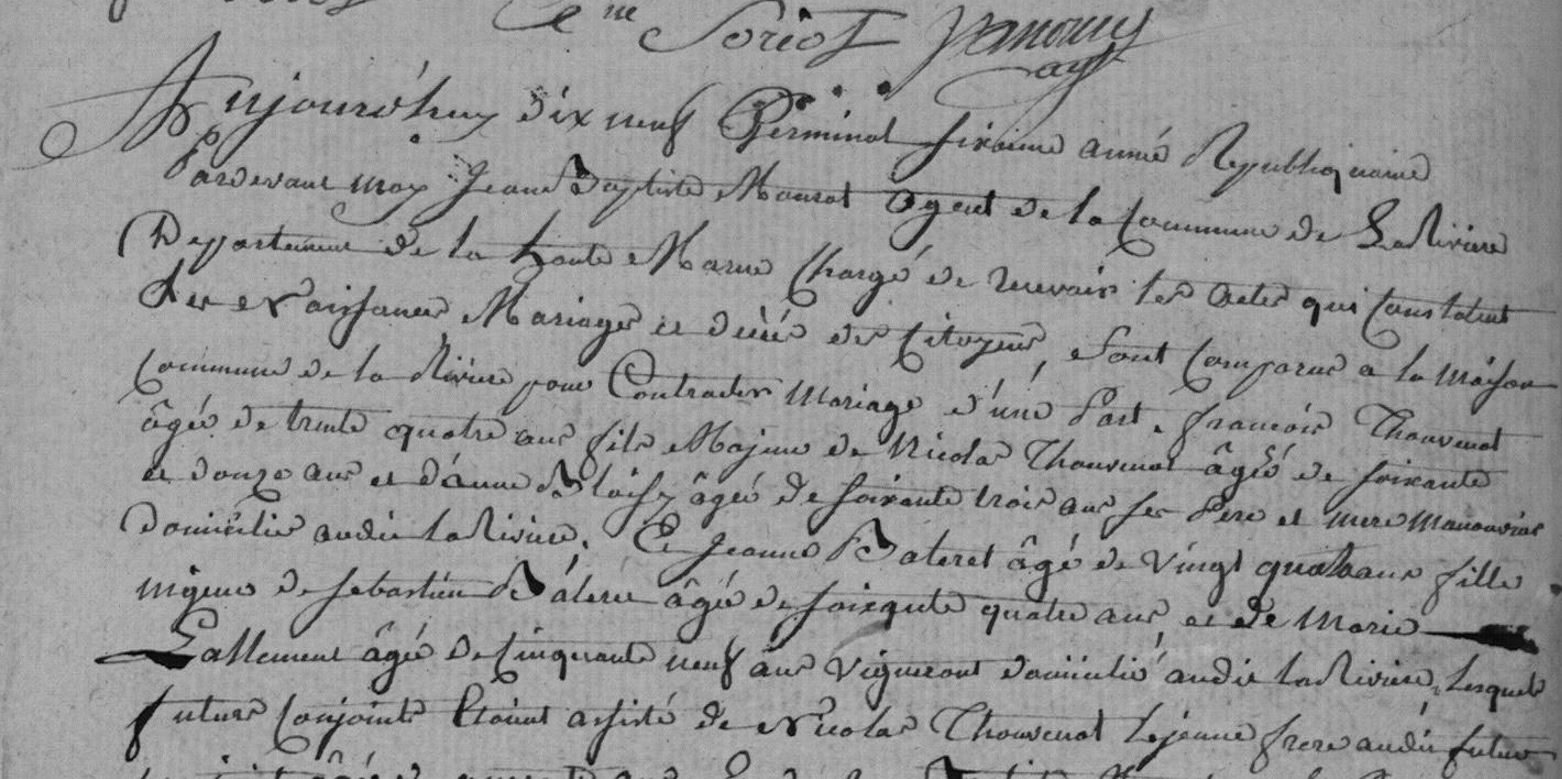 Soriot
Aujourd'huy dix neuf Germinal sixieme année Republiquaine
Pardevant moy Jean Baptiste Mourot Agent de la Commune de La Riviere
Departement de la haute Marne Chargé de recevoir les Actes qui Constatent
des Naissances Mariages et décés des Citoyens, Sont Comparus a la Maison
Commune de la Riviere pour Contracter Mariage d'une Part, françois Thouvenot
âgée de trente quatre ans fils Majeur de Nicolas Thouvenot âgéé de soixante
et douze ans et d'anne Bloisy âgée de soixante trois ans ses Pere et mere manouvrier
domicilié audit la Riviere. Et Jeanne Bateret âgé de vingt quatre ans fille
migeure de sebastien Baterer âgée de soixante quatre ans et de Marie
Lallement âgée de Cinquante neuf ans Vigneront domicilié audit la Riviere, lesquels
futurs Conjoints Etoient assisté de Nicolas Thouvenot Lejeune frere audit futur